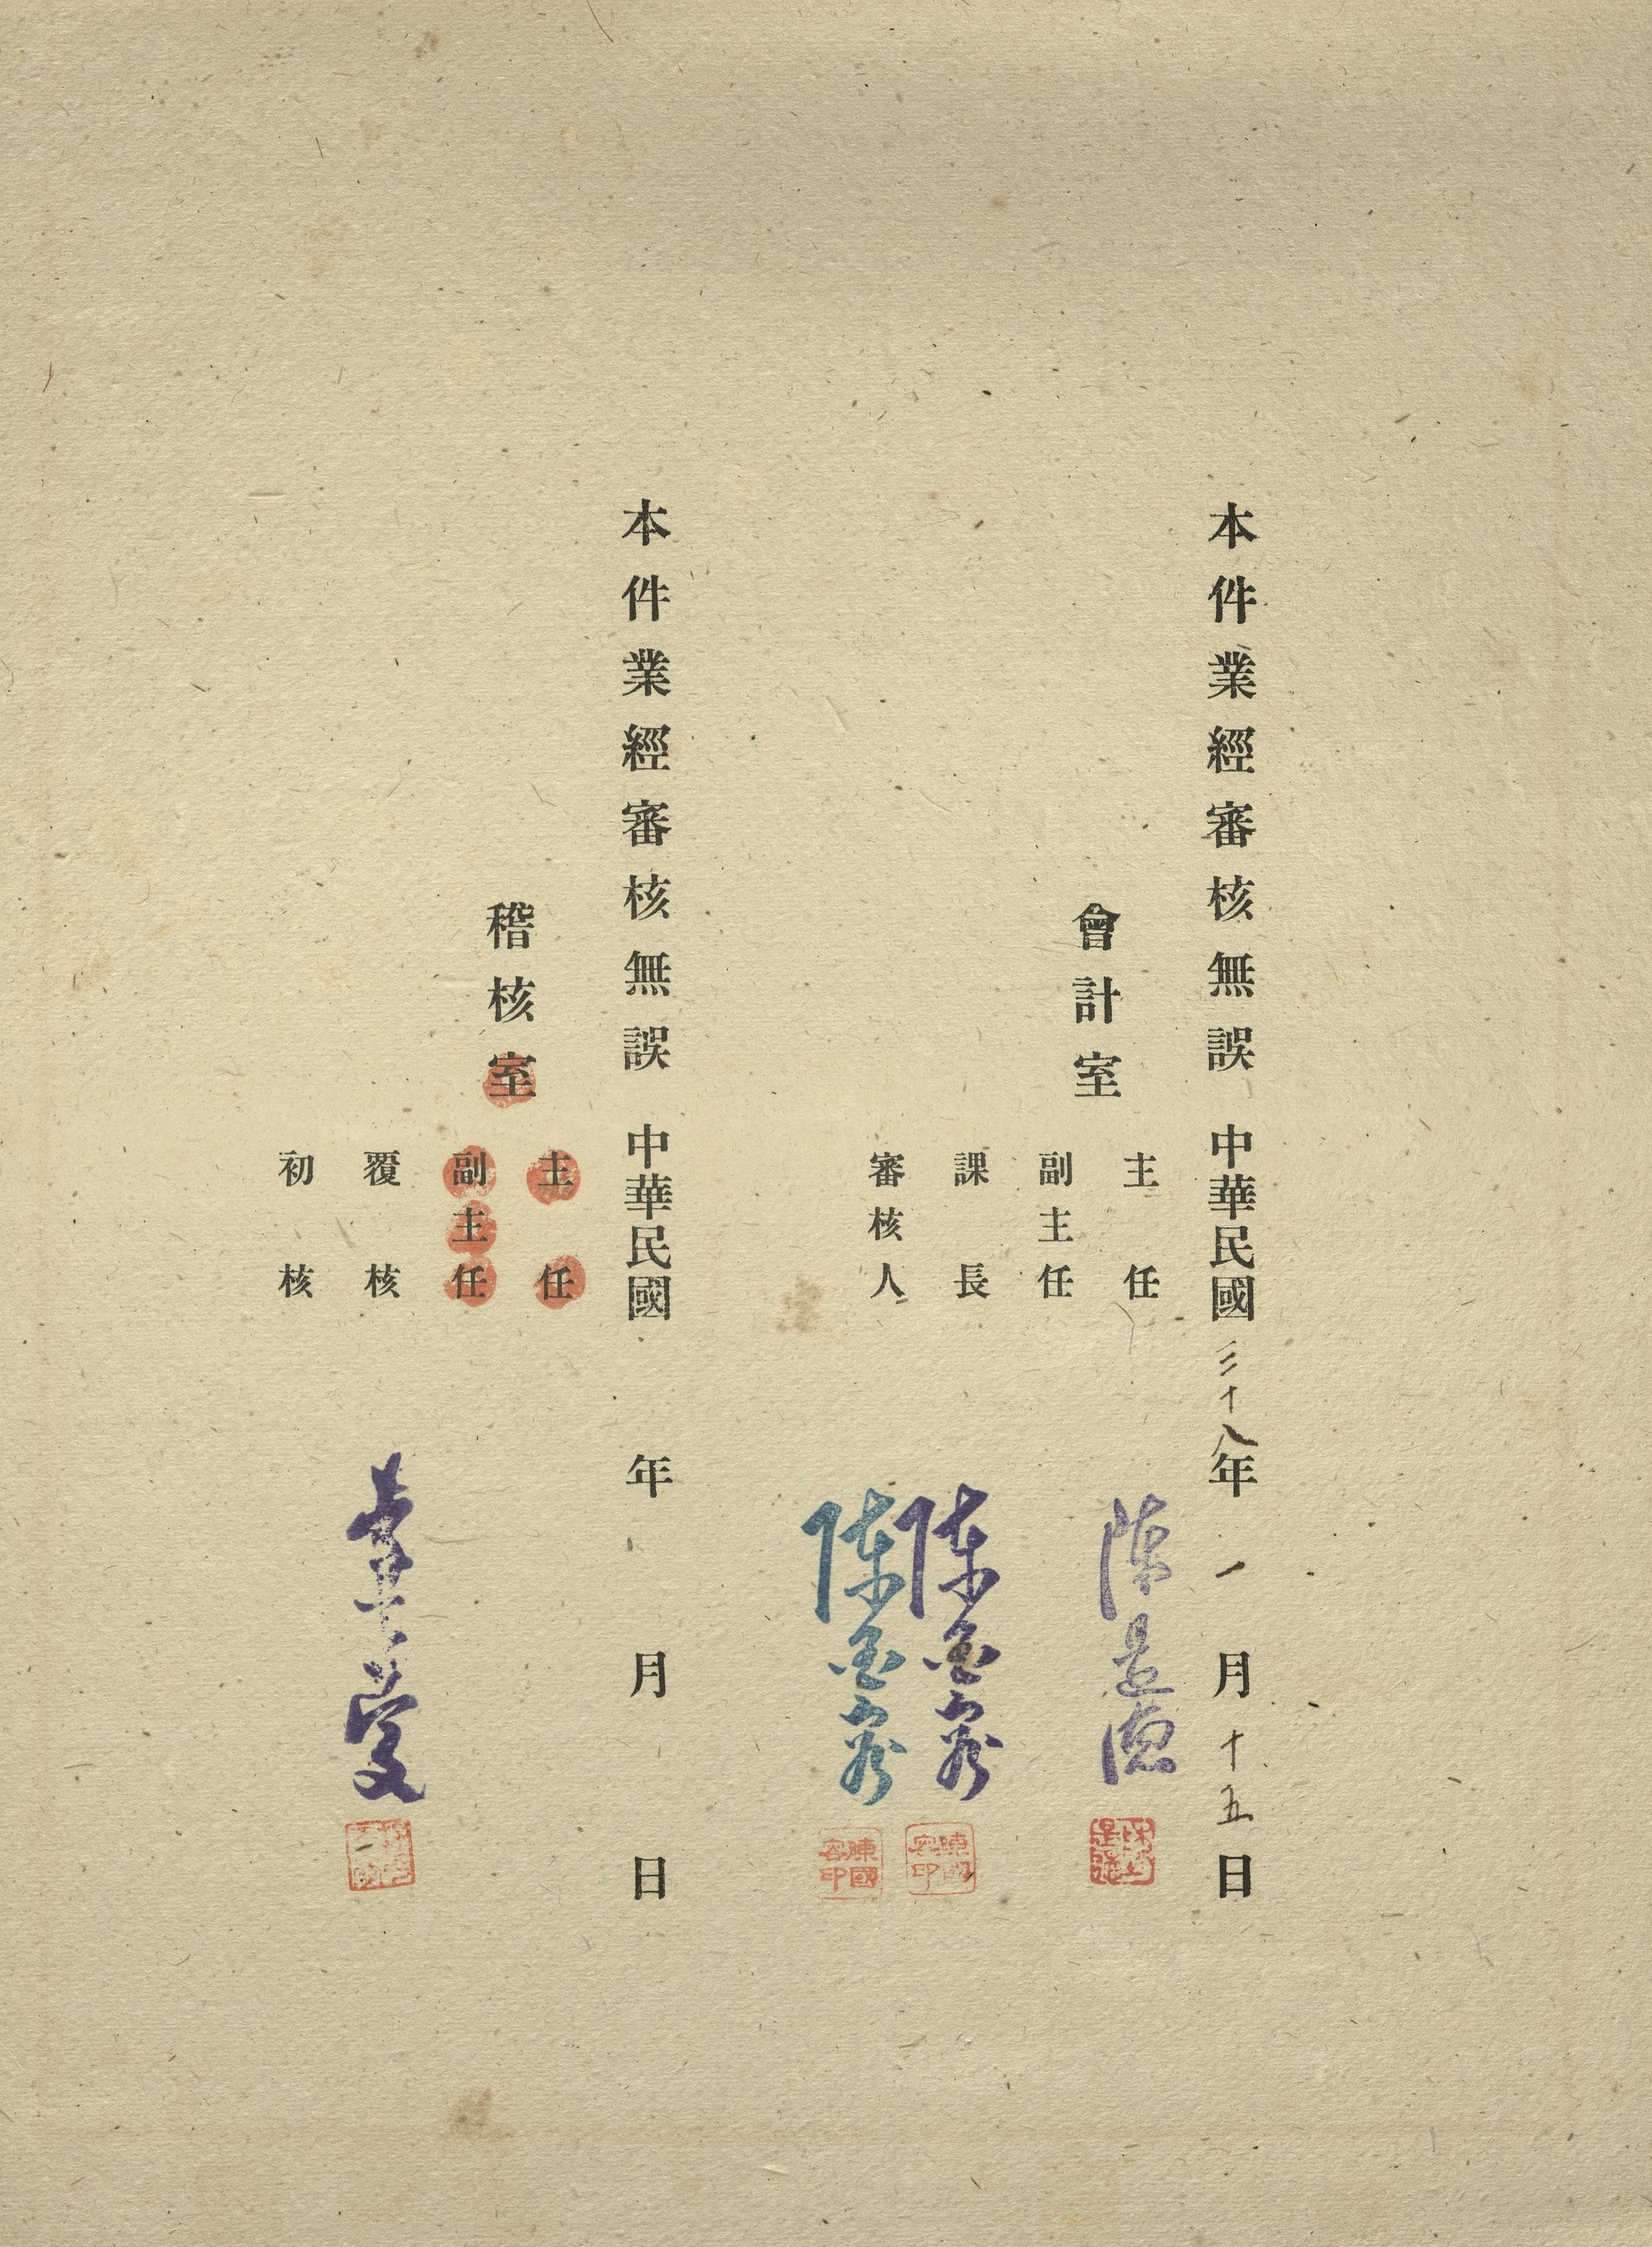 本件業經審核無誤 中華民國三十八年一月十五日
會計室
主任 陳是德
副主任
課長 陳國容
審核人 陳國容
陳國容印
陳國容印
本件業經審核無誤 中華民國 年 月 日
稽核室
主任
副主任
覆核
初核